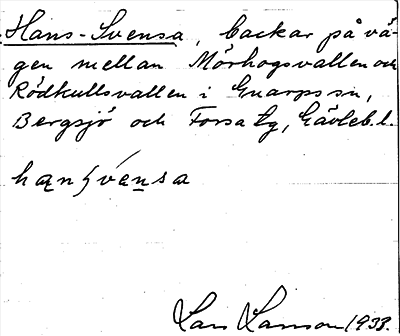 Hans-Svensa, backar på vä-
gen mellan Mörhogsvallen och
Rödkullsvallen i Gnarps sn,
Bergsjö och Forsa tg, Gävleb. l.
hansvensa
Lars Larsson 1933.